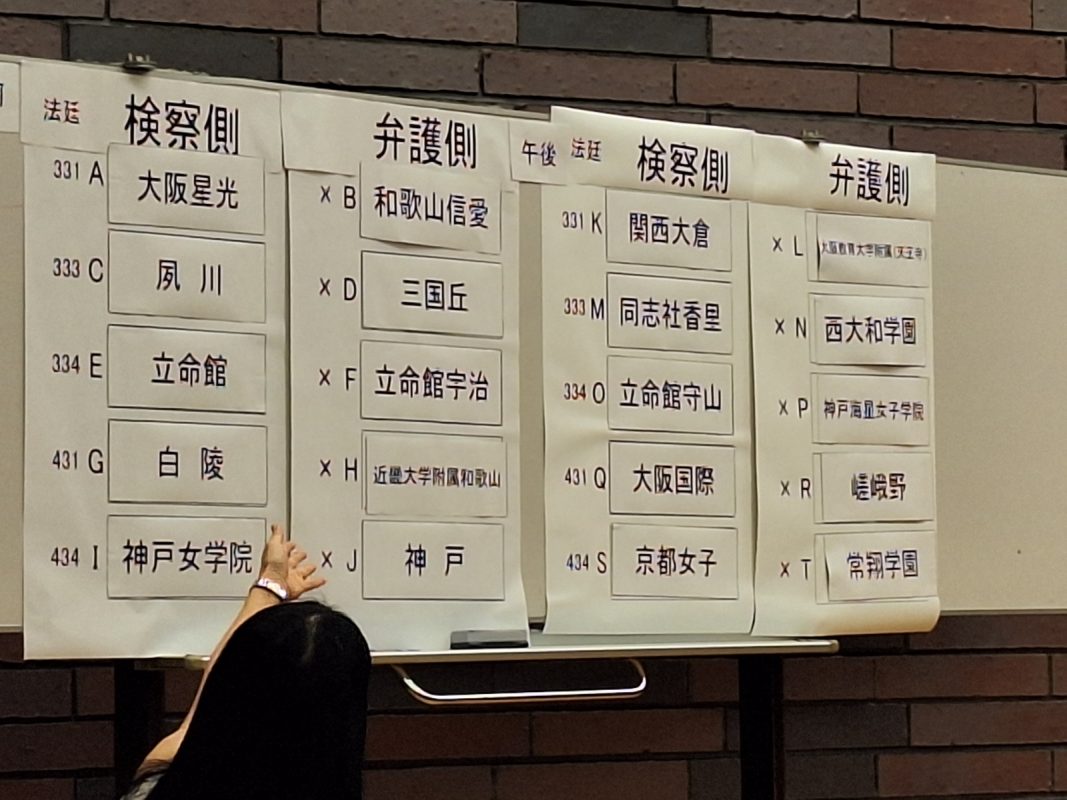 法廷 検察側 弁護側
331 A 大阪星光 × B 和歌山信愛
333 C 夙川 × D 三国丘
334 E 立命館 × F 立命館宇治
431 G 白陵 × H 近畿大学附属和歌山
434 I 神戸女学院 × J 神戸
午後 法廷 検察側 弁護側
331 K 関西大倉 × L 大阪教育大学附属(天王寺)
333 M 同志社香里 × N 西大和学園
334 O 立命館守山 × P 神戸海星女子学院
431 Q 大阪国際 × R 嵯峨野
434 S 京都女子 × T 常翔学園